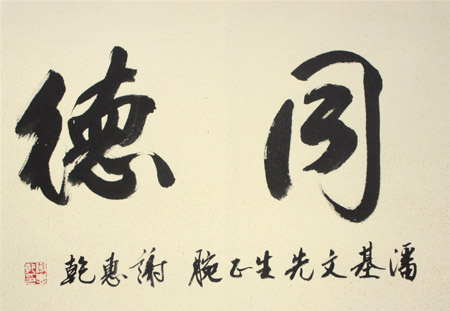 同德
潘基文先生正腕 謝惠乾